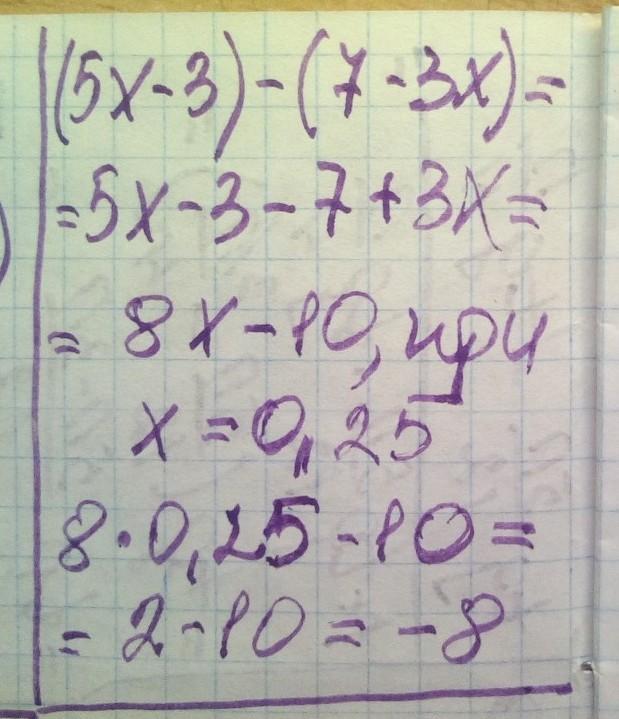 (5x-3)-(7-3x)=
=5x-3-7+3x=
= 8x-10, при
x=0,25
8·0,25-10=
= 2-10=-8